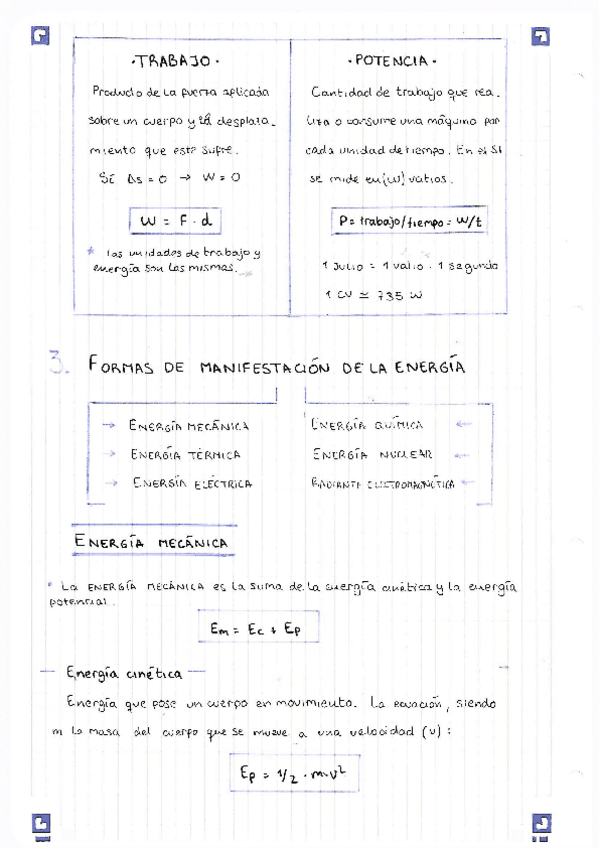 ·TRABAJO·
Producto de la fuerza aplicada
sobre un cuerpo y el desplaza-
miento que este sufre.
Si Δs = 0 → W = 0
W = F · d
* las unidades de trabajo y
energía son las mismas.
·POTENCIA·
Cantidad de trabajo que rea-
liza o consume una máquina por
cada unidad de tiempo. En el SI
se mide en (W) vatios.
P = trabajo/tiempo = W/t
1 Julio = 1 vatio · 1 segundo
1 CV ≃ 735 W
3. FORMAS DE MANIFESTACIÓN DE LA ENERGÍA
→ ENERGÍA MECÁNICA
→ ENERGÍA TÉRMICA
→ ENERGÍA ELÉCTRICA
ENERGÍA QUÍMICA ←
ENERGÍA NUCLEAR ←
RADIANTE ELECTROMAGNÉTICA ←
ENERGÍA MECÁNICA
* La ENERGÍA MECÁNICA es la suma de la energía cinética y la energía
potencial.
Em = Ec + Ep
— Energía cinética —
Energía que pose un cuerpo en movimiento. La ecuación, siendo
m la masa del cuerpo que se mueve a una velocidad (v) :
Ep = 1/2 · m·v²